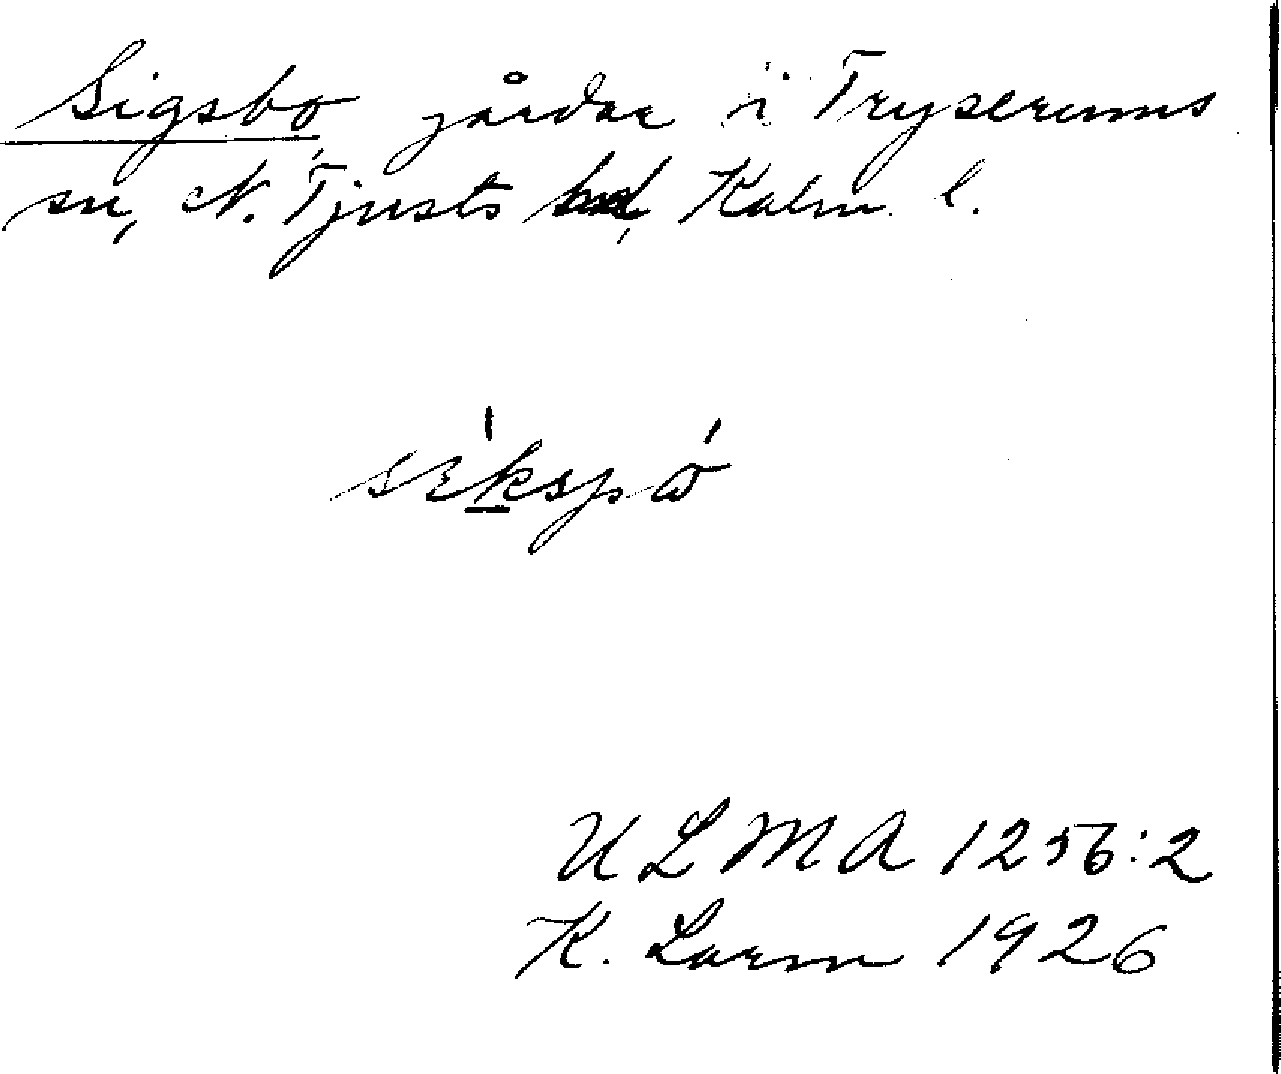 Sigsbo gårdar i Tryserums
sn, N. Tjusts hd, Kalm. l.
ULMA 1256:2
K. Larm 1926